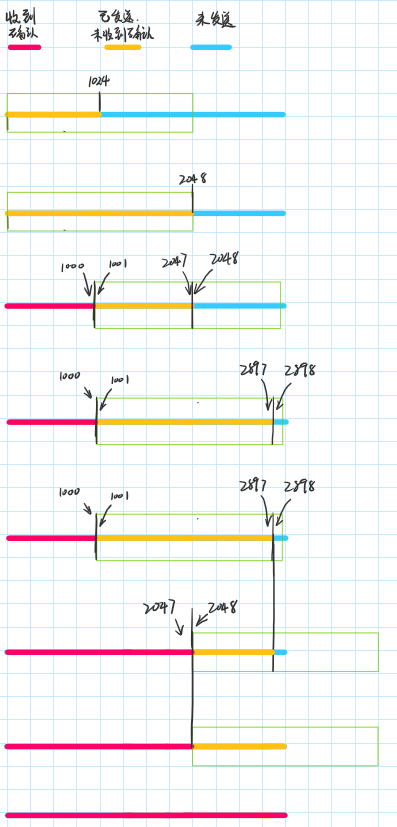 收到 已发送. 未发送
已确认 未收到确认
1024
2048
1000 1001 2047 2048
1000 1001 2897 2898
1000 1001 2897 2898
2047 2048